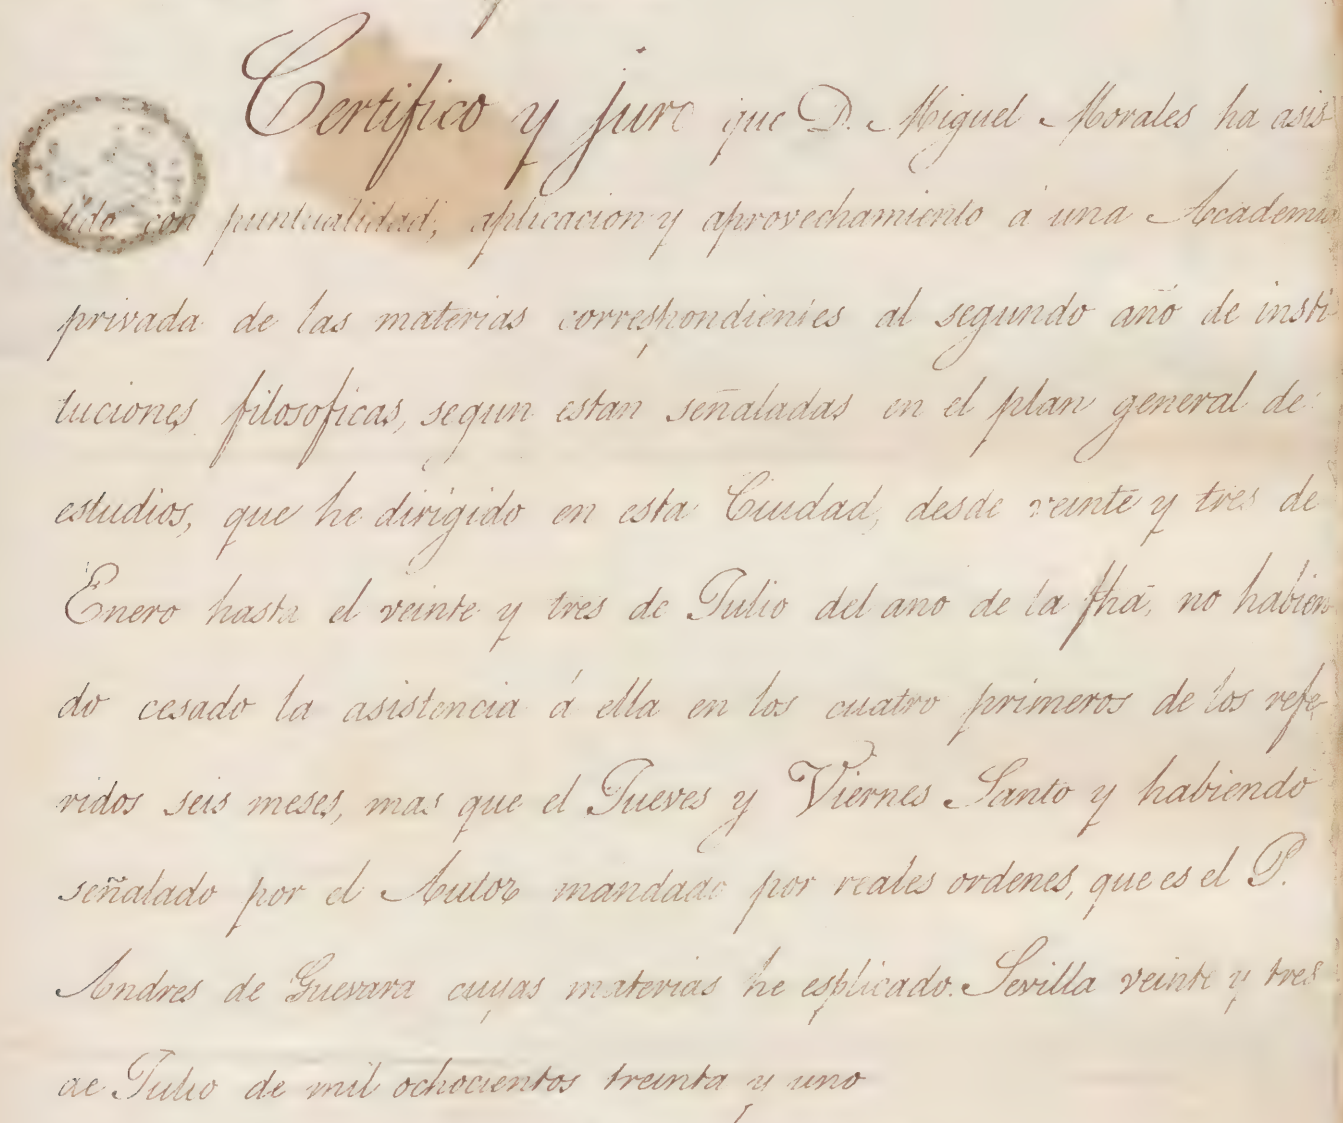 Certifico y juro que D. Miguel Morales ha asis-
tido con puntualidad, aplicacion y aprovechamiento á una Academia
privada de las materias correspondientes al segundo año de insti-
tuciones filosoficas, segun estan señaladas en el plan general de
estudios, que he dirigido en esta Ciudad, desde veinte y tres de
Enero hasta el veinte y tres de Julio del ano de la fha, no habien
do cesado la asistencia á ella en los cuatro primeros de los refe-
ridos seis meses, mas que el Jueves y Viernes Santo y habiendo
señalado por el Autor mandado por reales ordenes, que es el P.
Andres de Guevara cuyas materias he esplicado. Sevilla veinte y tres
de Julio de mil ochocientos treinta y uno